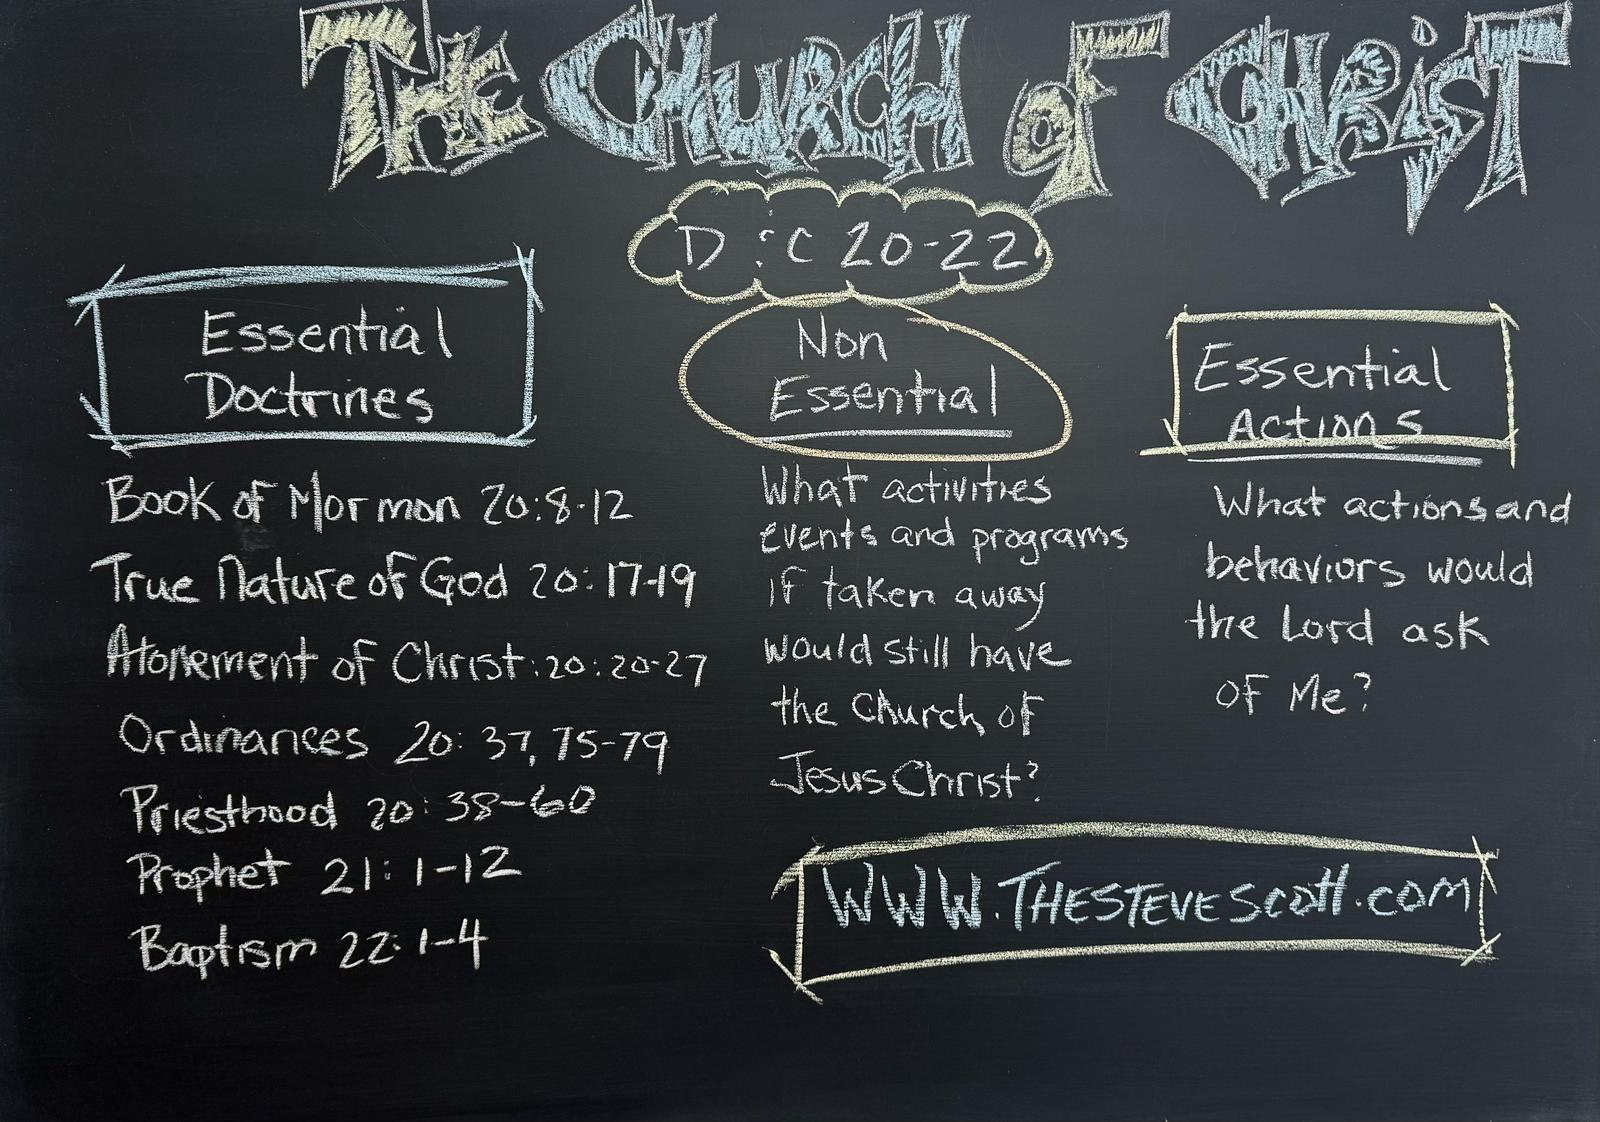 The Church of Christ
D:C 20-22
Essential
Doctrines
Book of Mormon 20:8-12
True Nature of God 20:17-19
Atonement of Christ:20:20-27
Ordinances 20:37,75-79
Priesthood 20:38-60
Prophet 21:1-12
Baptism 22:1-4
Non
Essential
What activities
events and programs
if taken away
would still have
the Church of
Jesus Christ?
Essential
Actions
What actions and
behaviors would
the Lord ask
of Me?
WWW.THESTEVEScott.com